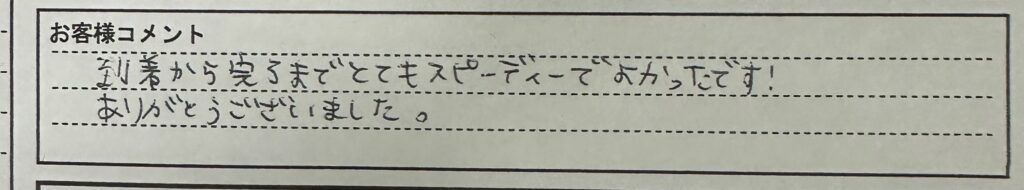 お客様コメント
到着から完了までとてもスピーディーでよかったです!
ありがとうございました。